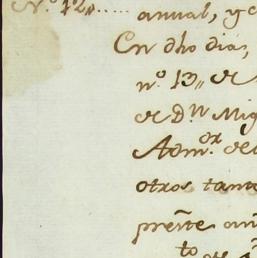 N.º 12,,..... anual, y c
En dho dia,
n.º 13,, de
de D.n Mig
Adm.or de
otros tant
preste
to